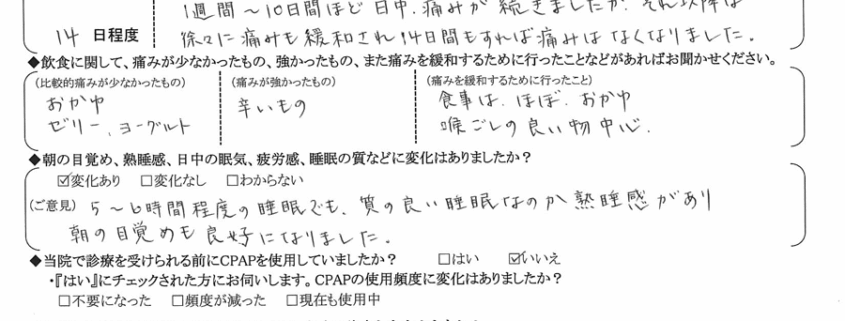 1週間～10日間ほど日中、痛みが続きましたが、それ以降は
14 日程度 徐々に痛みも緩和され14日間もすれば痛みはなくなりました。
◆飲食に関して、痛みが少なかったもの、強かったもの、また痛みを緩和するために行ったことなどがあればお聞かせください。
(比較的痛みが少なかったもの) (痛みが強かったもの) (痛みを緩和するために行ったこと)
おかゆ 辛いもの 食事は、ほぼ、おかゆ
ゼリー、ヨーグルト 喉ごしの良い物中心、
◆朝の目覚め、熟睡感、日中の眠気、疲労感、睡眠の質などに変化はありましたか？
☑変化あり □変化なし □わからない
(ご意見) 5～6時間程度の睡眠でも、質の良い睡眠なのか熟睡感があり
朝の目覚めも良好になりました。
◆当院で診療を受けられる前にCPAPを使用していましたか？ □はい ☑いいえ
・『はい』にチェックされた方にお伺いします。CPAPの使用頻度に変化はありましたか？
□不要になった □頻度が減った □現在も使用中